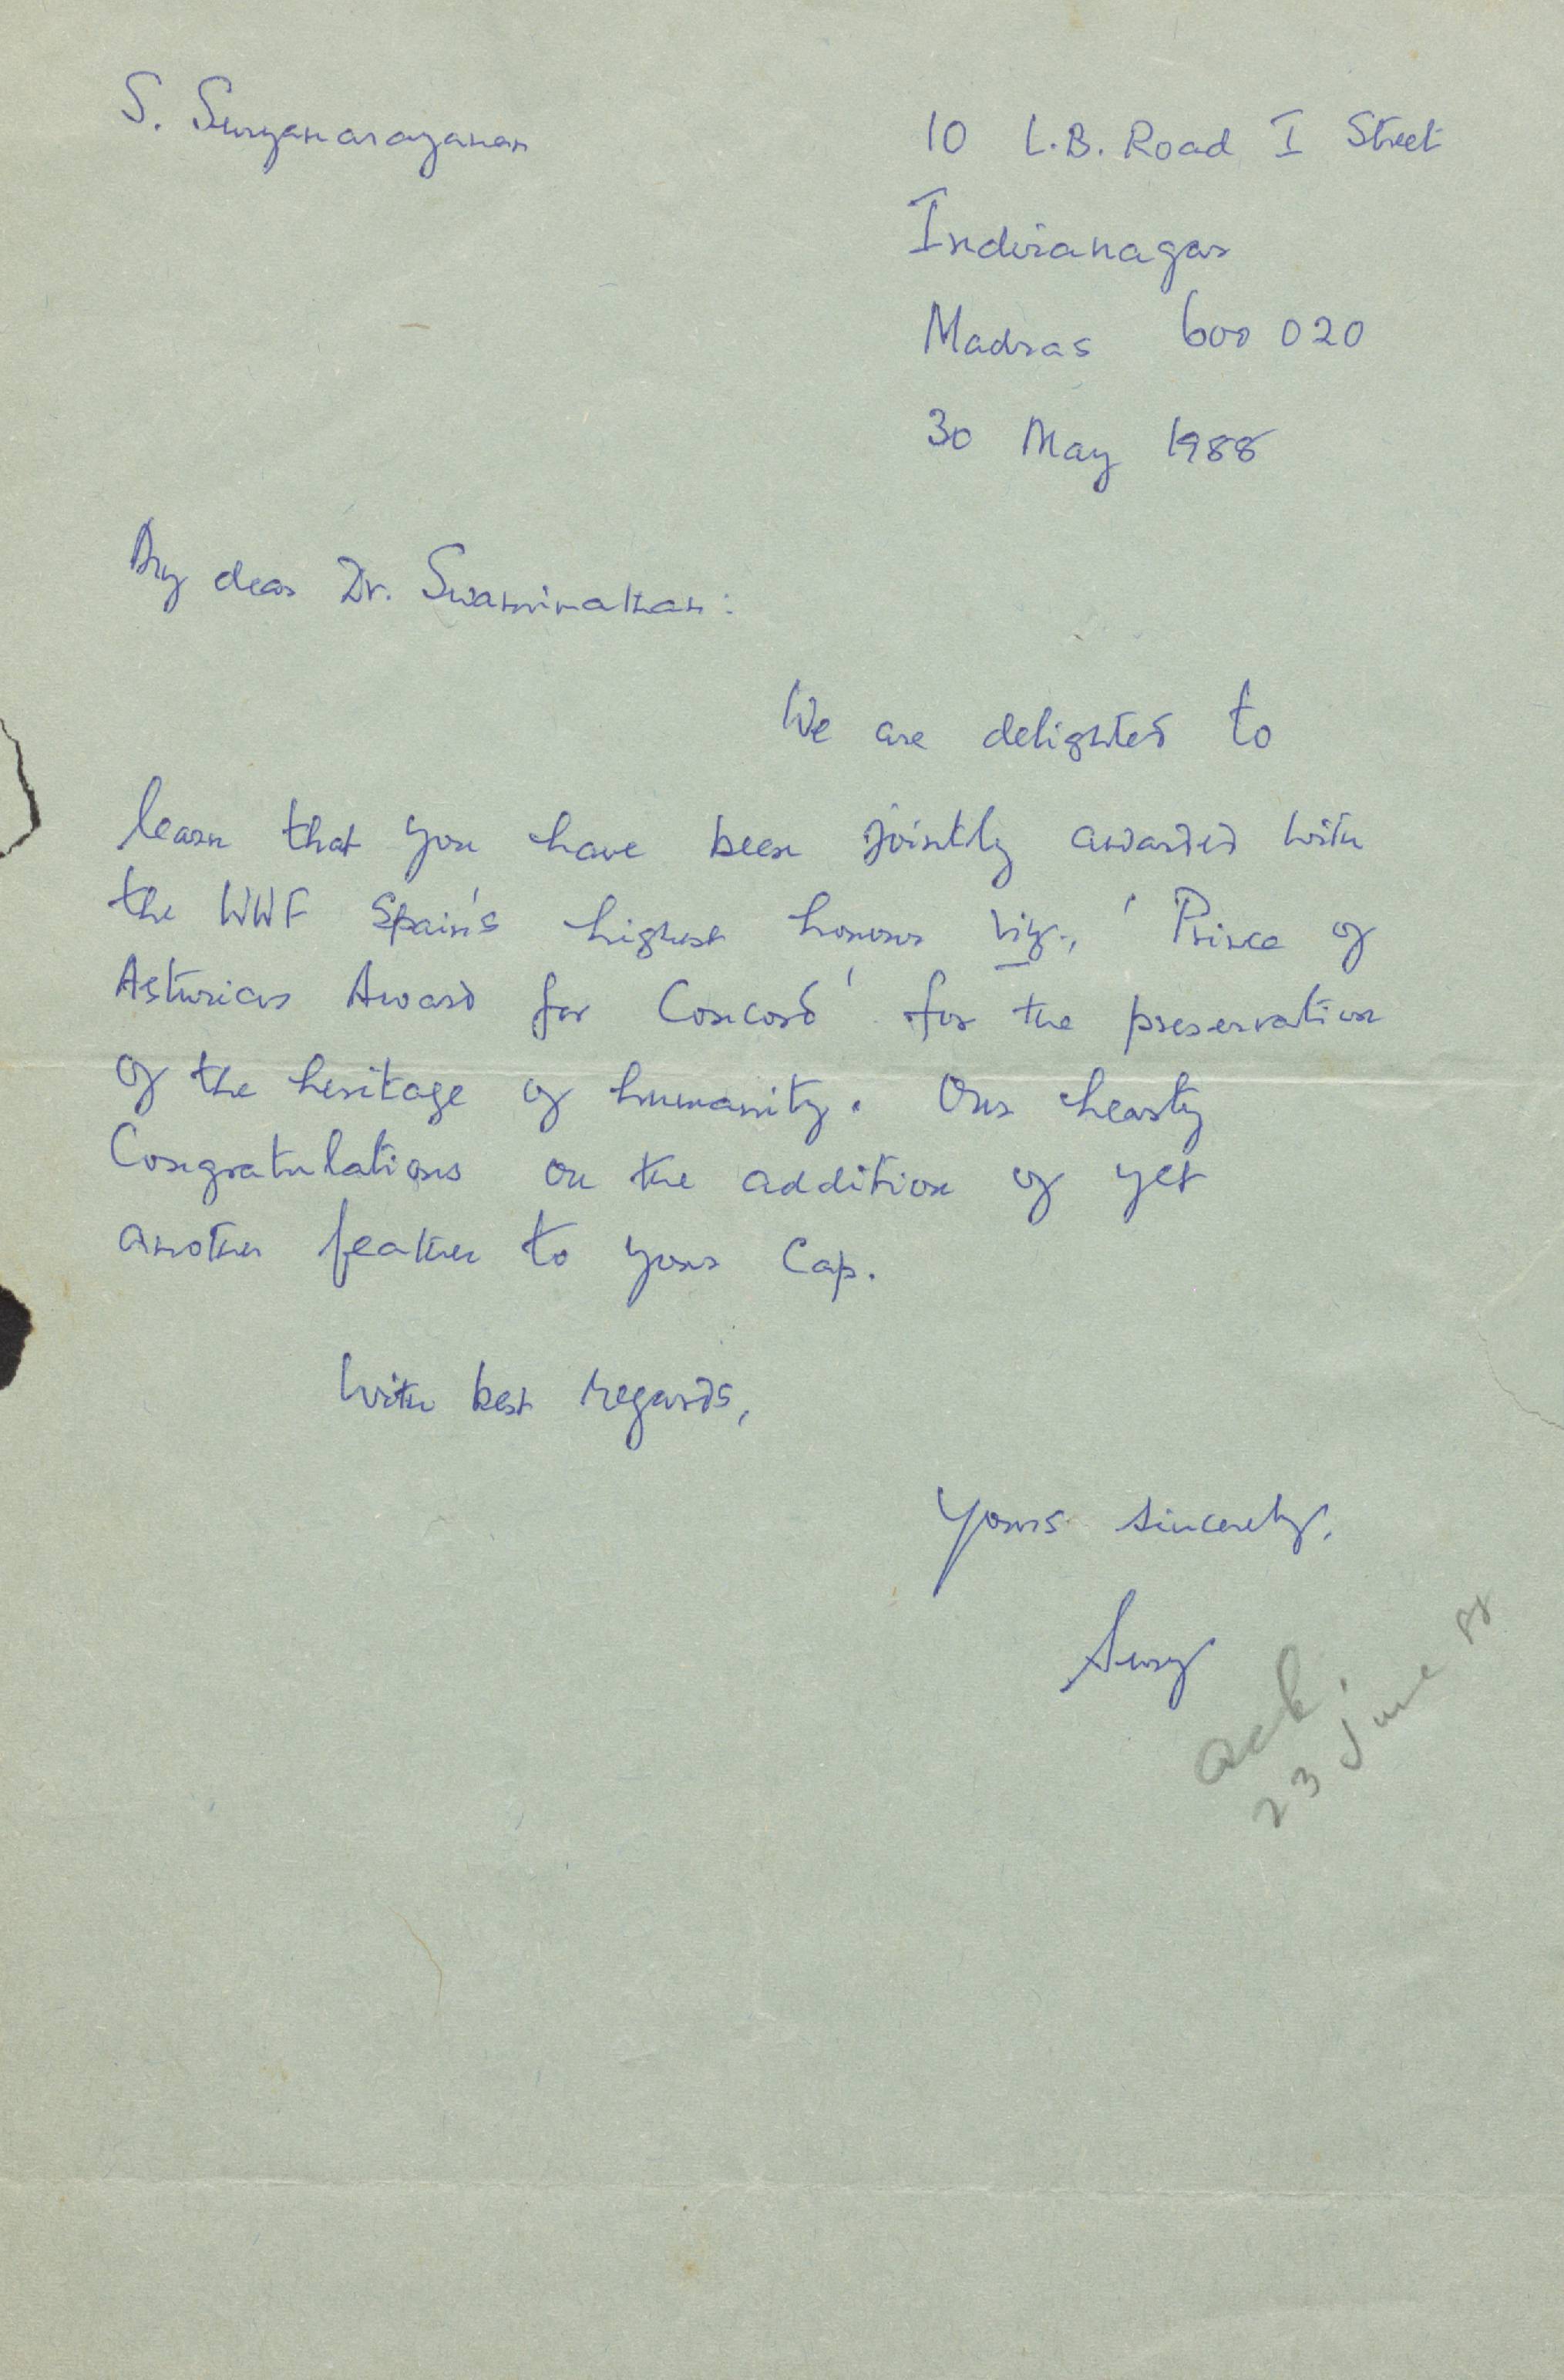 S. Suryanarayanan
10 L.B. Road I Street
Indiranagar
Madras 600 020
30 May 1988
My dear Dr. Swaminathan:
We are delighted to
learn that you have been jointly awarded with
the WWF Spain's highest honour viz., 'Prince of
Asturias Award for Concord' for the preservation
of the heritage of humanity. Our hearty
Congratulations on the addition of yet
another feather to your Cap.
With best regards,
Yours sincerely,
Sury
ack.
23 June 88